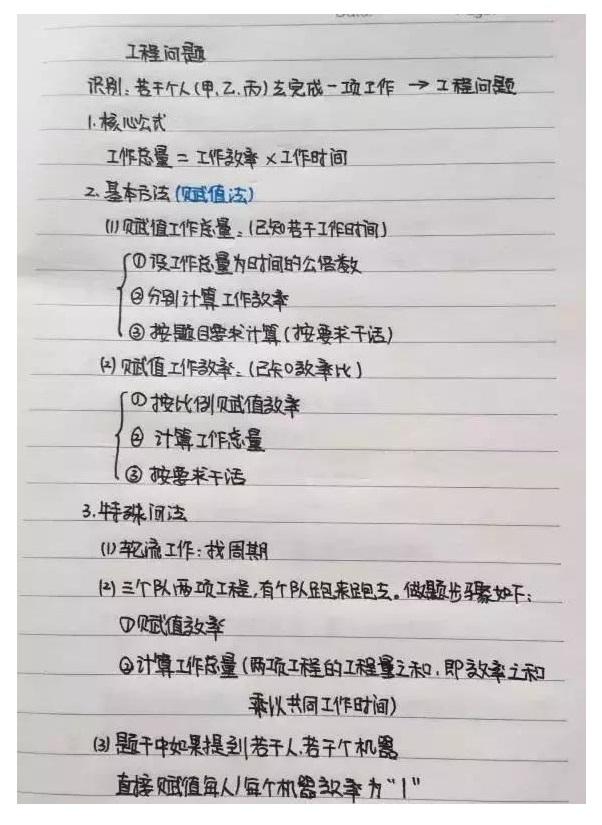 工程问题
识别:若干个人(甲、乙、丙)去完成一项工作 → 工程问题
1.核心公式
工作总量 = 工作效率 × 工作时间
2.基本方法(赋值法)
(1)赋值工作总量:(已知若干工作时间)
①设工作总量为时间的公倍数
②分别计算工作效率
③按题目要求计算(按要求干活)
(2)赋值工作效率:(已知效率比)
①按比例赋值效率
②计算工作总量
③按要求干活
3.特殊问法
(1)轮流工作:找周期
(2)三个队两项工程,有个队跑来跑去。做题步骤如下:
①赋值效率
②计算工作总量(两项工程的工程量之和,即效率之和
乘以共同工作时间)
(3)题干中如果提到若干人、若干个机器
直接赋值每人/每个机器效率为“1”